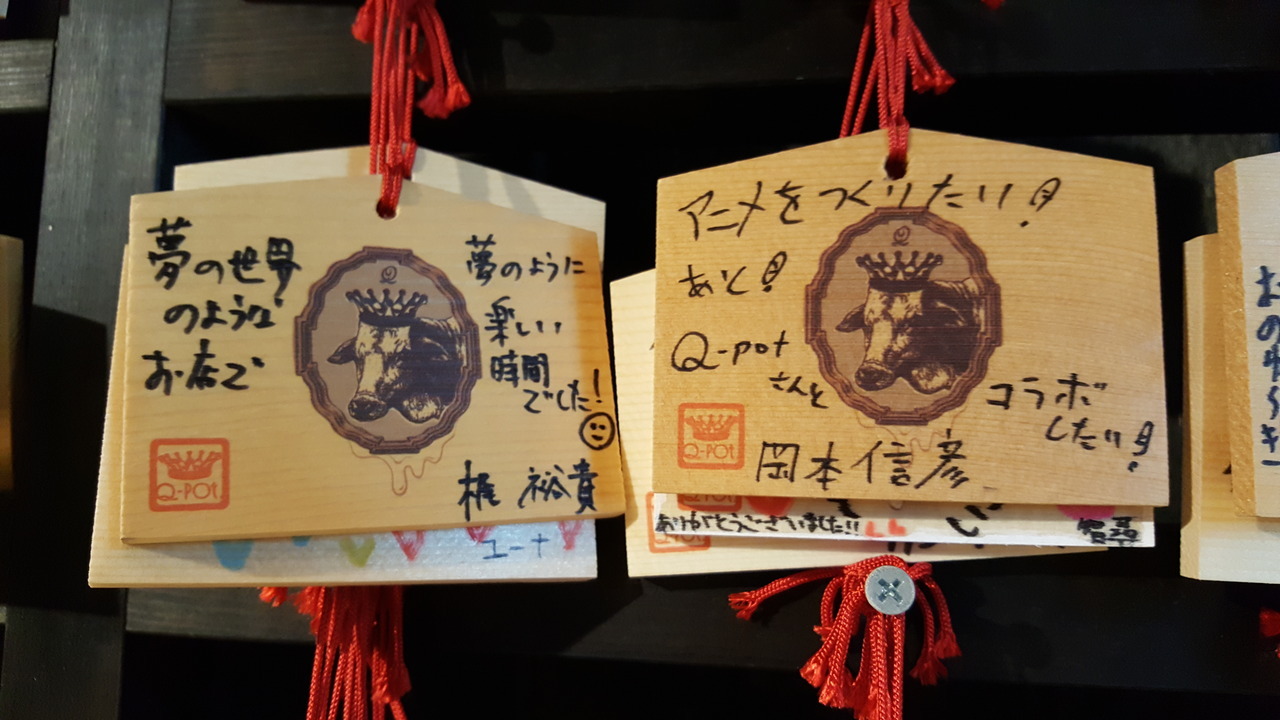 夢の世界
のような
お店で
夢のように
楽しい
時間
でした!
梶 裕貴
Q-POt
ユーナ
アニメをつくりたい!
あと!
Q-pot
さんと
コラボ
したい!
岡本信彦
Q-POt
ありがとうございました!!